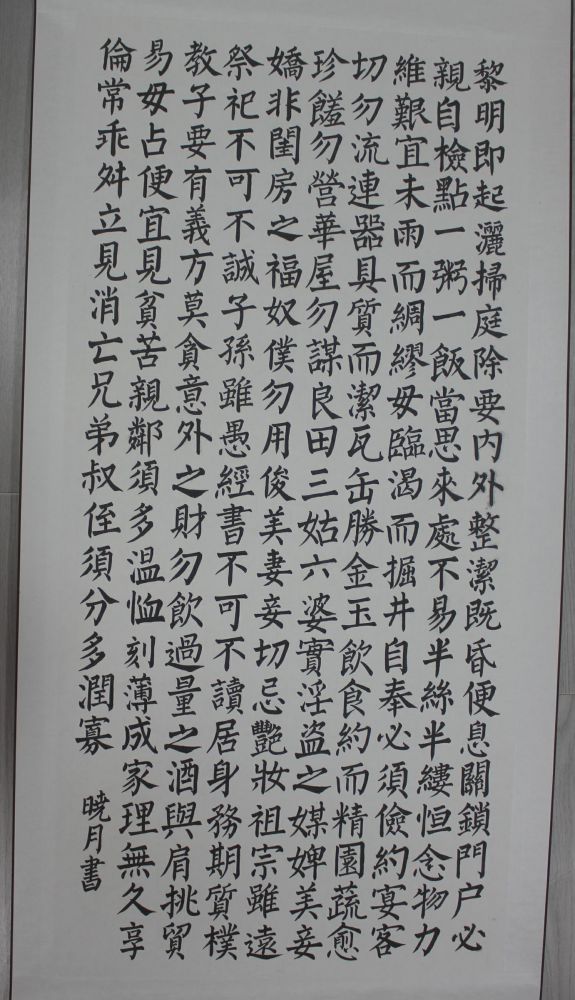 黎明即起灑掃庭除要内外整潔既昏便息關鎖門户必
親自檢點一粥一飯當思來處不易半絲半縷恒念物力
維艱宜未雨而綢繆毋臨渴而掘井自奉必須儉約宴客
切勿流連器具質而潔瓦缶勝金玉飲食約而精園蔬愈
珍饈勿營華屋勿謀良田三姑六婆實淫盜之媒婢美妾
嬌非閨房之福奴僕勿用俊美妻妾切忌艷妝祖宗雖遠
祭祀不可不誠子孫雖愚經書不可不讀居身務期質樸
教子要有義方莫貪意外之財勿飲過量之酒與肩挑貿
易毋占便宜見貧苦親鄰須多温恤刻薄成家理無久享
倫常乖舛立見消亡兄弟叔侄須分多潤寡
曉月書